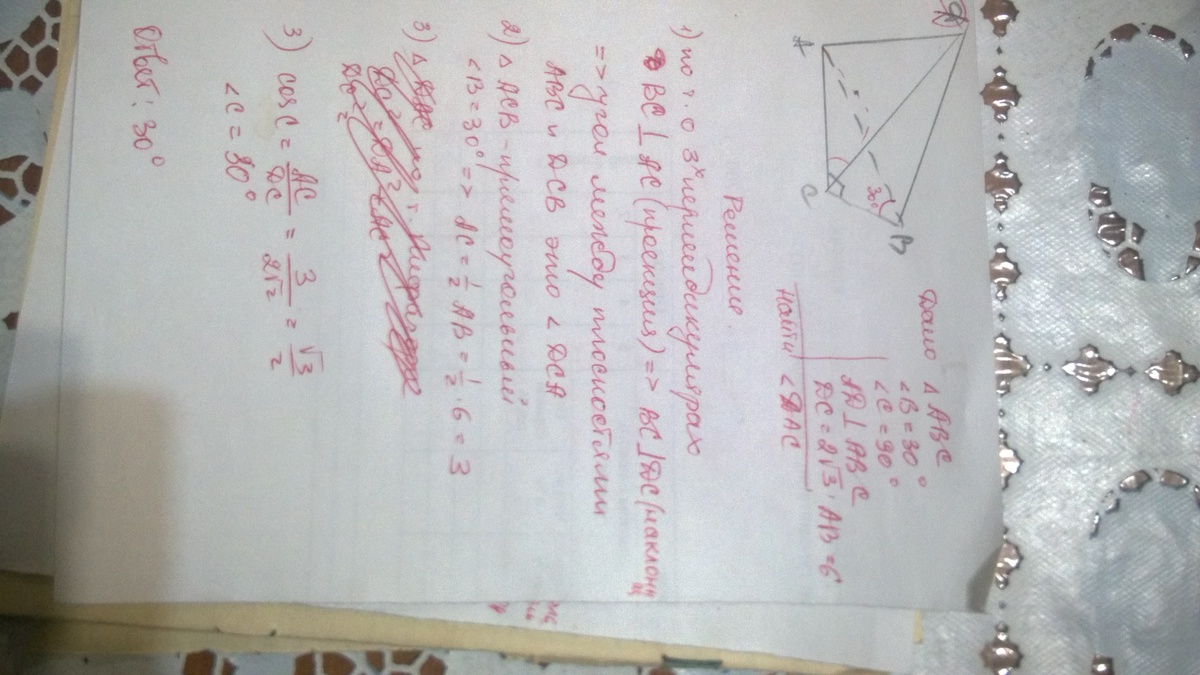 Дано △ ABC
∠B = 30°
∠C = 90°
AD ⊥ ABC
DC = 2√3, AB = 6
Найти ∠DAC
D
A
C
B
30°
Решение.
1) по т. о 3х перпендикулярах
BC ⊥ AC (проекция) => BC ⊥ DC (наклонн
=> угол между плоскостями
ABC и DCB это ∠DCA
2) △ ACB - прямоугольный
∠B = 30° => AC = 1/2 AB = 1/2 · 6 = 3
3) △ DAC по т. Пифагора
3) cos C = AC/DC = 3/2√2 = √3/2
∠C = 30°
Ответ: 30°